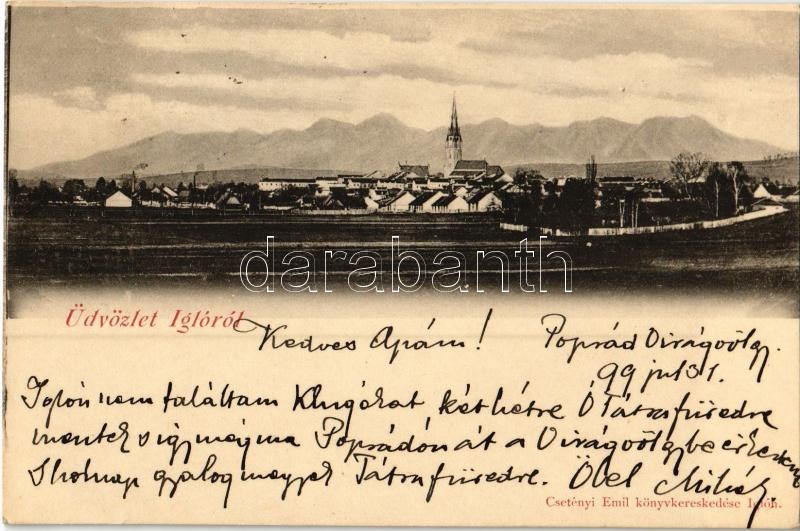 darabanth
Üdvözlet Iglóról
Kedves Apám! Poprád Virágvölgy.
99 jul 31.
Iglón nem találtam Klugékat, két hétre Ó Tátrafüredre
mentek s így még ma Poprádon át a Virágvölgybe érkeztem
S holnap gyalog megyek Tátrafüredre. Ölel Mihály.
Csetényi Emil könyvkereskedése Iglón.